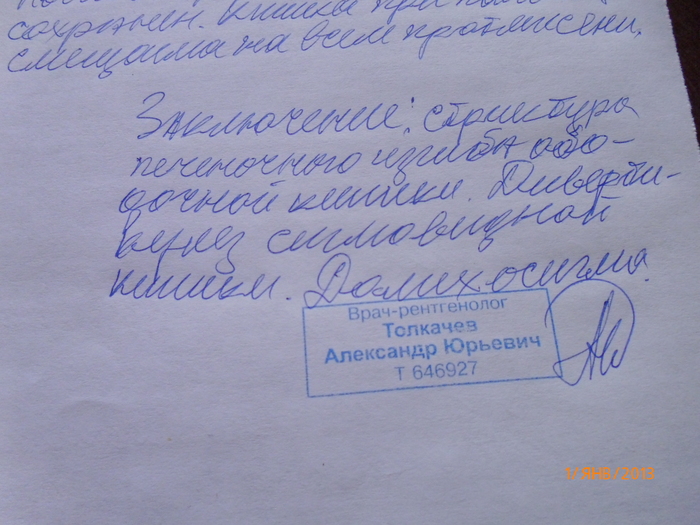 сохранен. Кишка при пальп
смещаема на всем протяжении.
Заключение: стриктура
печеночного изгиба обо-
дочной кишки. Диверти-
кулез сигмовидной
кишки. Долихосигма.
Врач-рентгенолог
Толкачев
Александр Юрьевич
Т 646927
1/ЯНВ/2013